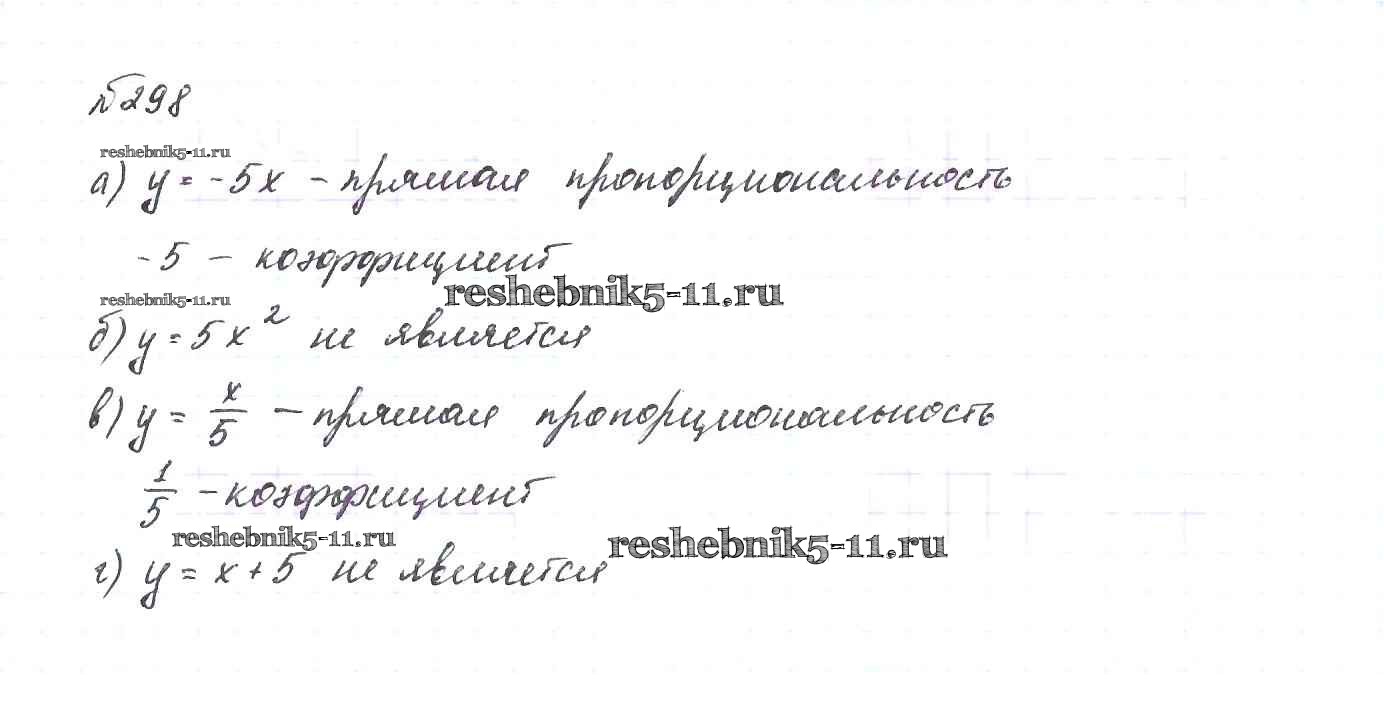 №298
reshebnik5-11.ru
а) y = -5x - прямая пропорциональность
-5 - коэффициент
reshebnik5-11.ru
reshebnik5-11.ru
б) y = 5x² не является
в) y = x/5 - прямая пропорциональность
1/5 - коэффициент
reshebnik5-11.ru
reshebnik5-11.ru
г) y = x + 5 не является